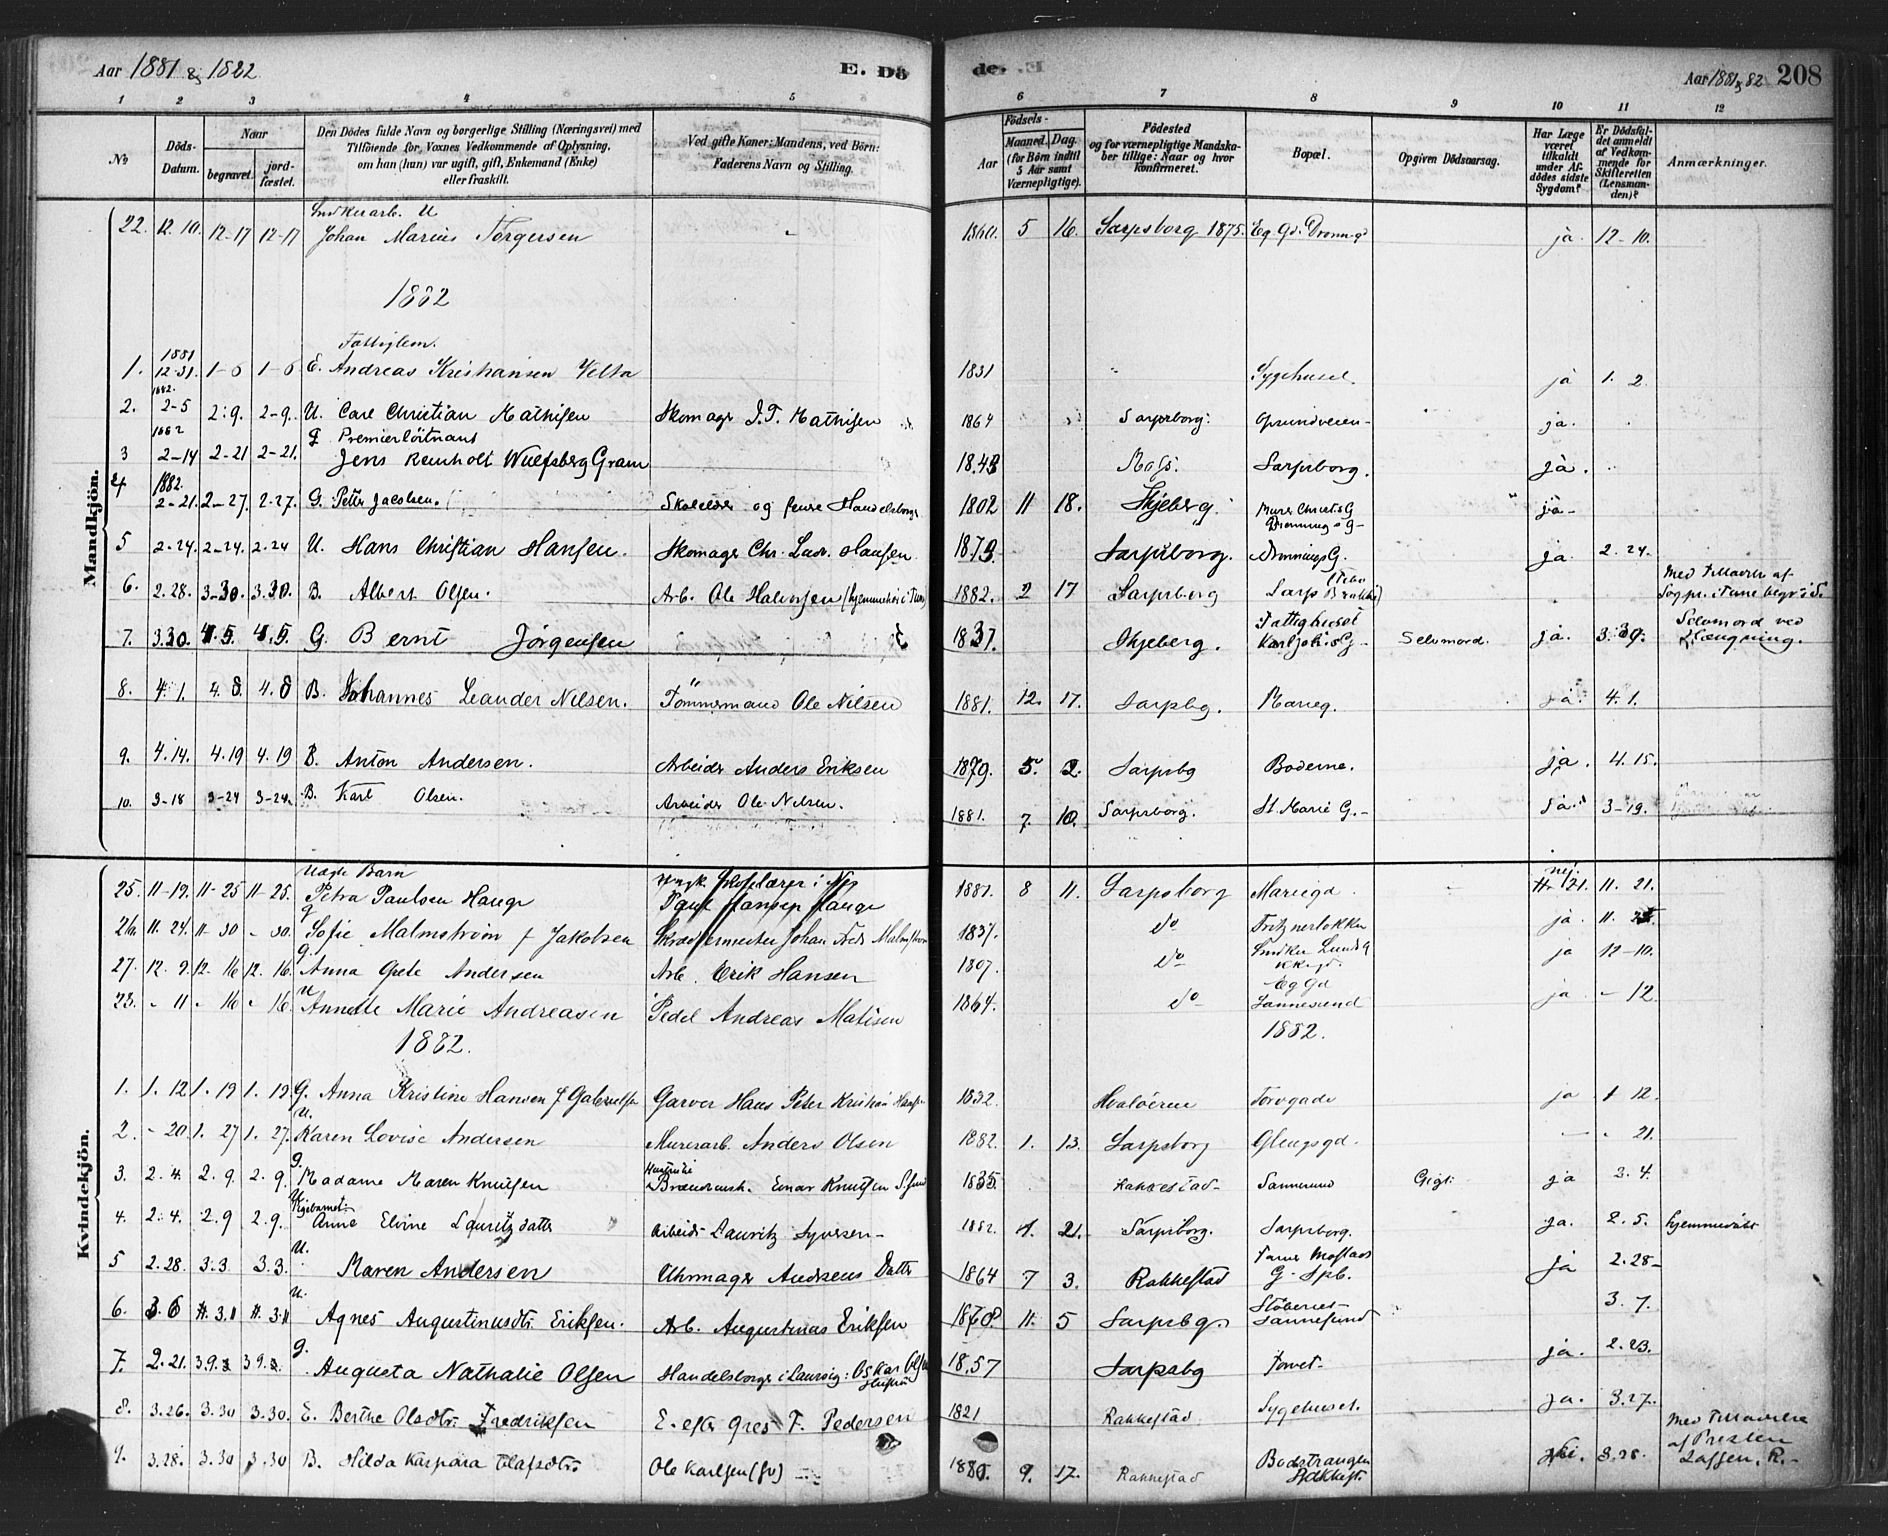 Aar 1881 & 1882
E. Dö
de. E
Aar 1881 & 82 208
1 2 3 4 5 6 7 8 9 10 11 12
No
Döds-Datum.
Naar
begravet.
jord-fæstet.
Den Dödes fulde Navn og borgerlige Stilling (Næringsvei) med
Tilföiende for Voxnes Vedkommende af Oplysning,
om han (hun) var ugift, gift, Enkemand (Enke)
eller fraskilt.
Ved gifte Koner: Mandens, ved Börn:
Faderens Navn og Stilling.
Födsels-
Aar
Maaned. Dag.
(for Börn indtil
5 Aar samt
Værnepligtige).
Födested
og for værnepligtige Mandska-
ber tillige: Naar og hvor
konfirmeret.
Bopæl.
Opgiven Dödsaarsag.
Har Læge
været
tilkaldt
under Af-
dödes sidste
Sygdom?
Er Dödsfal-
det anmeldt
af Vedkom-
mende for
Skifteretten
(Lensman-
den)?
Anmærkninger.
Mandkjön.
22. 12. 10. 12-17 12-17 U Johan Marius Torgersen 1860. 5 16. Sarpsborg 1875. Eg. Gd. ja. 12-10.
1882
Fattiglem.
1. 1881 12-31 1-6 1-6 E. Andreas Kristiansen 1831 Sygehuset. ja 1. 2
2. 1882. 2-5 2-9. 2-9. U. Carl Christian Mathisen Skomager J. T. Mathisen 1864 Sarpsborg. Grundveien- ja.
3 1882 2-14 2-21 2-21. g Premierlöitnant
Jens Reinholt Wulfsberg Gram 1843 Moss. Sarpsborg. ja.
4 1882. 2-21. 2-27. 2.27. G. Petter Jacobsen. og Handelsborger 1802 11 18. Skjeberg. ja-
5 2-24. 2-24. 2.24 U. Hans Christian Hansen. Skomager Chr. Hansen 1873. Sarpsborg. ja. 2.24.
6. 2.28. 3-30. 3.30. B. Albert Olsen. Arb. Ole Halvorsen 1882. 2 17 Sarpsborg Sarp Med Tilladelse af
Sogpr. i Tune begr.
7. 3.30. 4.5. 4.5. G. Bernt Jörgensen 1837. Skjeberg. Fattighuset
Karl Johs G- Selvmord. ja. 3.30. Selvmord ved
Hængning.
8. 4.1. 4.8 4.8 B. Johannes Leander Nilsen. Tömmermand Ole Nilsen 1881. 12. 17. Sarpsbg. ja. 4.1.
9. 4.14. 4.19 4.19 B. Anton Andersen. Arbeider Anders Eriksen 1879. 5. 2. Sarpsbg Boderne. ja. 4.15.
10. 3-18 3-24 3-24. B. Karl Olsen. Arbeider Ole Nilsen. 1881. 7. 10. Sarpsborg. St. Marie G.- ja. 3-19.
Kvindekjön.
25. 11-19. 11-25 11-25. Uægte Barn
Petra Paulsen Hauge
Paul Hansen Hauge 1881. 8 11. Sarpsborg Mariegd. nei. 11. 21.
26. 11.24. 11-30 - 30. g Sofie Malmström f Jakobsen Skræddermester Johan Malmström 1837. do Fritznerlökken ja.
27. 12. 9. 12. 16 12. 16. g. Anna Grete Andersen Arb. Erik Hansen 1807. do ja 12-10.
28. - 11 - 16 - 16. U Annette Marie Andreasen Pedel Andreas Matisen 1864. do Eg Gd
Sannesund ja - 12.
1882.
1882.
1. 1. 12 1. 19 1. 19. G. Anna Kristine Hansen f Gabrielsen Garver Hans Peter Kristian Hansen 1832. Hvalöerne Torvgade ja 1 12.
2. - 20. 1. 27 1. 27. U. Karen Lovise Andersen Murerarb. Anders Olsen 1882. 1. 13. Sarpsborg Glengsgd. - - 21.
3. 2. 4. 2. 9. 2. 9. g. Madame Maren Knutsen Einar Knutsen 1835. Rakkestad- Sannesund Gigt. ja 3. 4.
4. 2. 4. 2. 9 2. 9. U.
Anne Elvine Lauritzdatter Arbeider Lauritz Syversen- 1882. 1. 21. Sarpsborg. Sarpsborg. ja. 2. 5. hjemmedöbt
5 2.28. 3.3. 3.3. U. Maren Andersen Uhrmager Andersens Datter 1864 7 3. Rakkestad G. Spb. ja 2.28-
6. 3.6 3.11 3.11 U. Agnes Augustinusdtr. Eriksen. Arb. Augustinus Eriksen 11. 5 Sarpsbg. Sannesund 3. 7.
7. 2.21. g. Augusta Nathalie Olsen Handelsborger i Laurvig: Oskar Olsen
Hustru 1857 Sarpsbg Torvet- ja. 2.23.
8. 3.26. 3.30 3.30. E. Berthe Olsdtr. Fredriksen E. efter Gres F. Pedersen 1821 Rakkestad Sygehuset. ja. 3.27.
9. 3.28. 3.30 3.30 B. Hilda Kaspara Olafsdtr. Ole Karlsen 1880. 9. 17. Rakkestad nei. 3.28. Med Tilladelse
af Presten
Lassen, R.-